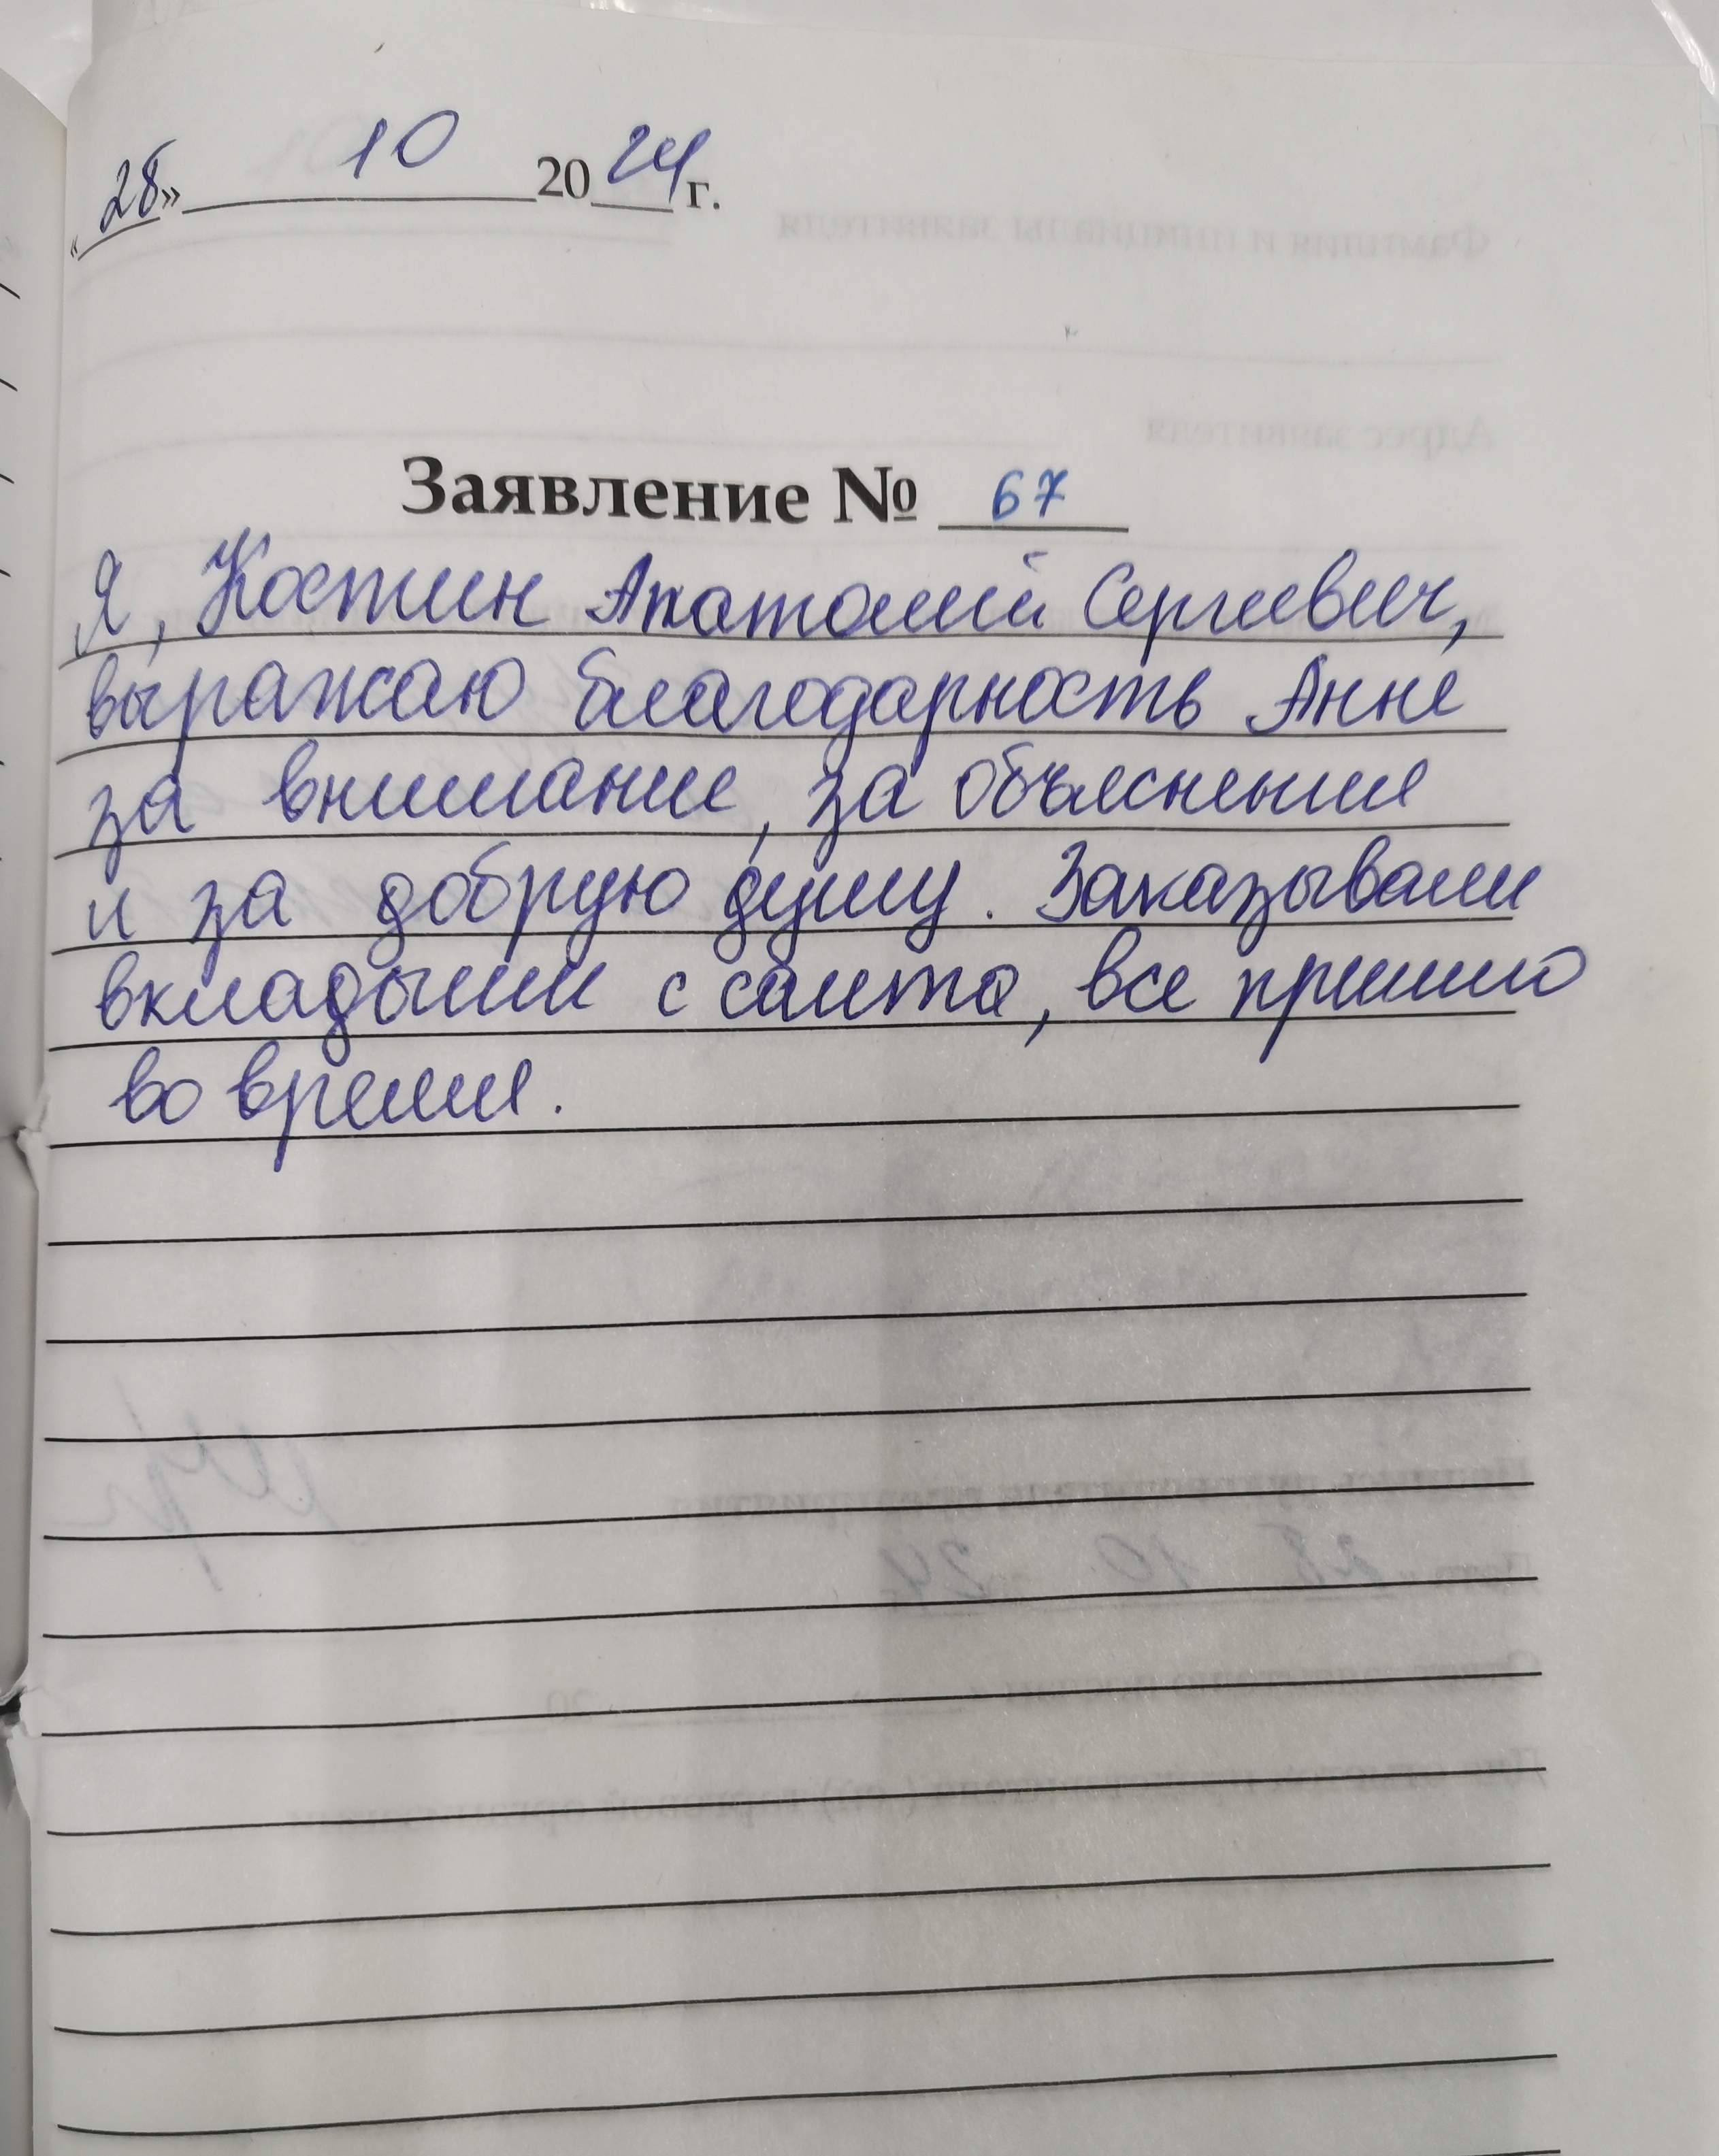 «28» 10 2024 г.
Заявление № 67
Я, Костин Анатолий Сергеевич,
выражаю благодарность Анне
за внимание, за объяснение
и за добрую душу. Заказывали
вкладыши с сайта, все пришло
во время.